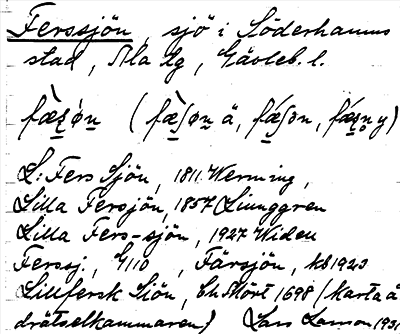 Ferssjön, sjö i Söderhamns
stad, Ala tg, Gävleb. l.
fæ̀ʂøn (fæ̀ʃøn ä, fǽʃøn, fǽʂn̥ y)
L: Fers Sjön, 1811 Werming,
Lilla Fersjön, 1857 Ljunggren
Lilla Fers-sjön, 1927 Widén
Ferssj., G110, Färsjön, kb 1923
Lillfersk Siön, Chr Mört 1698 (Karta å
drätselkammaren) Lars Larsson 1931